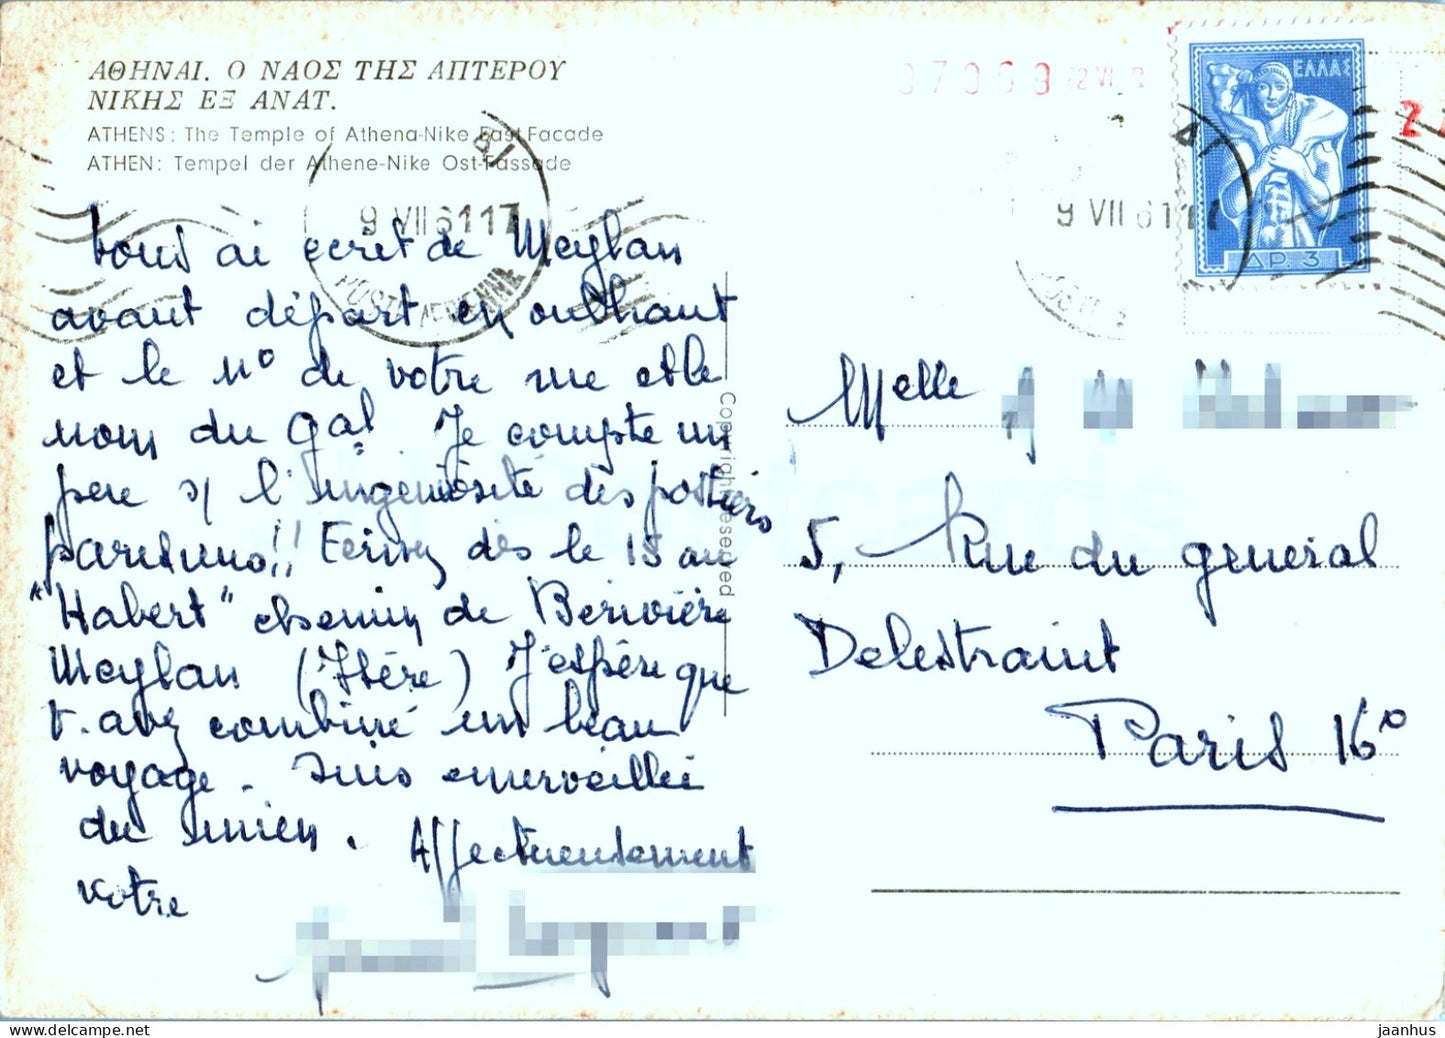 ΑΘΗΝΑΙ. Ο ΝΑΟΣ ΤΗΣ ΑΠΤΕΡΟΥ
ΝΙΚΗΣ ΕΞ ΑΝΑΤ.
ATHENS: The Temple of Athena-Nike East Facade
ATHEN: Tempel der Athene-Nike Ost-Fassade
9 VII 61 17
POSTE AERIENNE
vous ai ecrit de Meylan
avant départ en oubliant
et le n° de votre rue et le
nom du Gal Je compte un
peu s/ l'ingéniosité des postiers
parisiens!! Ecrivez dès le 15 au
"Habert" chemin de Berivière
Meylan (Isère) J'espère que
v. avez combiné un beau
voyage. Suis emerveillée
du mien. Affectueusement
votre
Copyright reserved
07069
9 VII 61 17
ΕΛΛΑΣ
ΔΡ. 3
2
Melle
5, Rue du general
Delestraint
Paris 16°
JH Postcards
delcampe.net
jaanhus